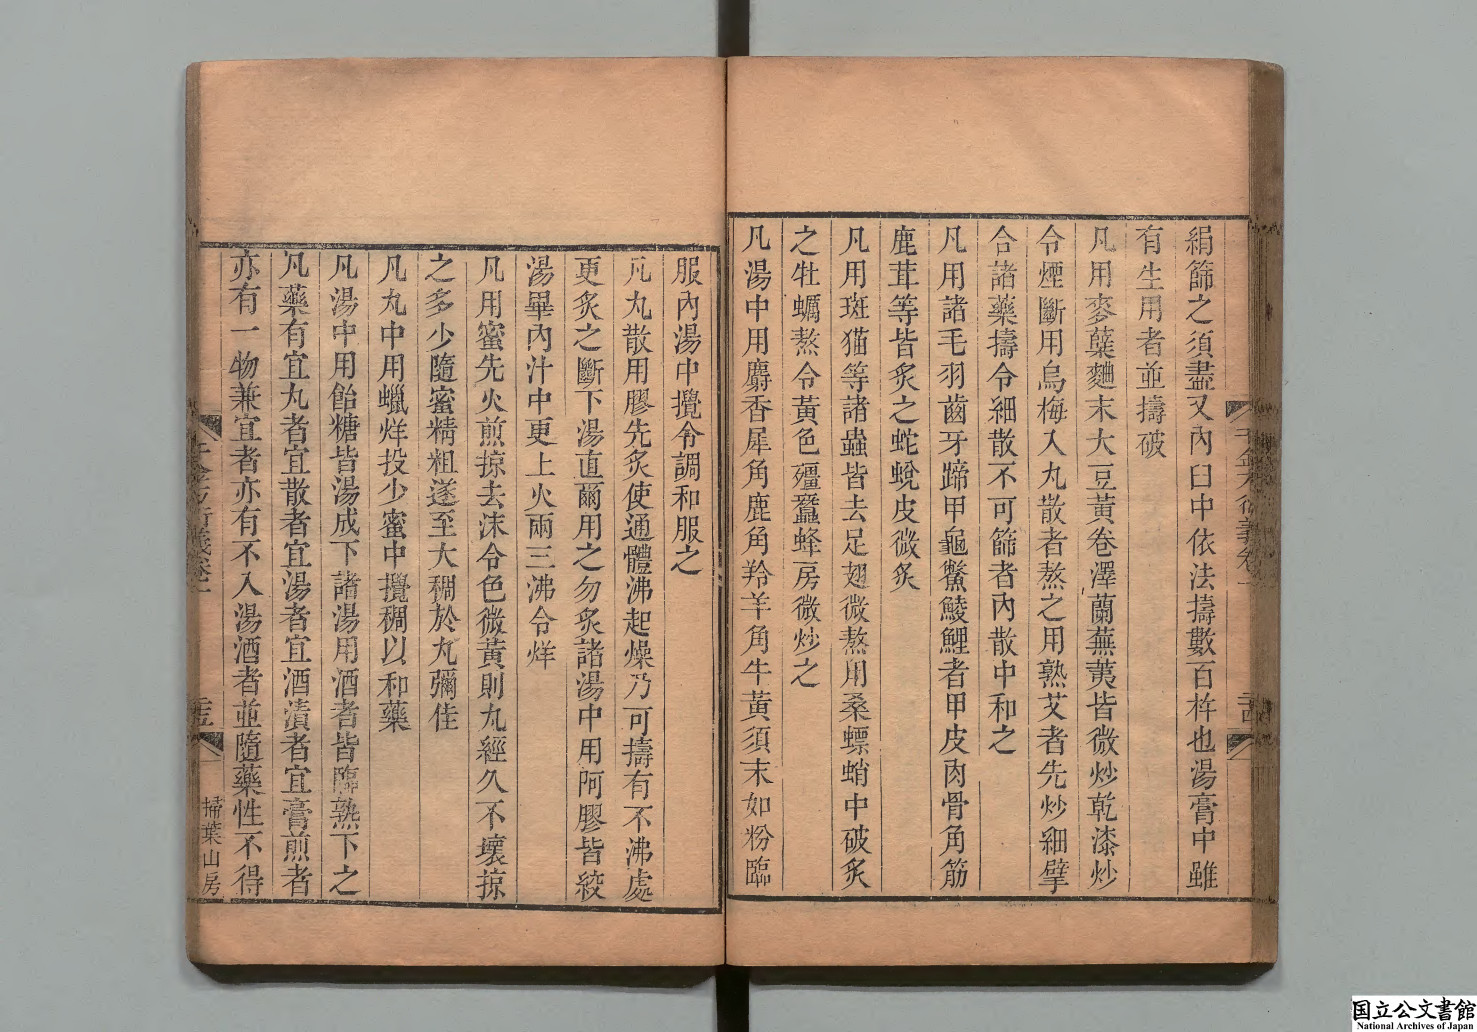 絹篩之須盡又內臼中依法擣數百杵也湯膏中雖
有生用者並擣破
凡用麥蘗麯末大豆黃卷澤蘭蕪荑皆微炒乾漆炒
令煙斷用烏梅入丸散者熬之用熟艾者先炒細擘
合諸藥擣令細散不可篩者內散中和之
凡用諸毛羽齒牙蹄甲龜鱉鯪鯉者甲皮肉骨角筋
鹿茸等皆炙之蛇蛻皮微炙
凡用斑猫等諸蟲皆去足翅微熬用桑螵蛸中破炙
之牡蠣熬令黃色殭蠶蜂房微炒之
凡湯中用麝香犀角鹿角羚羊角牛黃須末如粉臨
服內湯中攪令調和服之
凡丸散用膠先炙使通體沸起燥乃可擣有不沸處
更炙之斷下湯直爾用之勿炙諸湯中用阿膠皆絞
湯畢內汁中更上火兩三沸令烊
凡用蜜先火煎掠去沫令色微黃則丸經久不壞掠
之多少隨蜜精粗遂至大稠於丸彌佳
凡丸中用蠟烊投少蜜中攪稠以和藥
凡湯中用飴糖皆湯成下諸湯用酒者皆臨熟下之
凡藥有宜丸者宜散者宜湯者宜酒漬者宜膏煎者
亦有一物兼宜者亦有不入湯酒者並隨藥性不得
掃葉山房
国立公文書館
National Archives of Japan